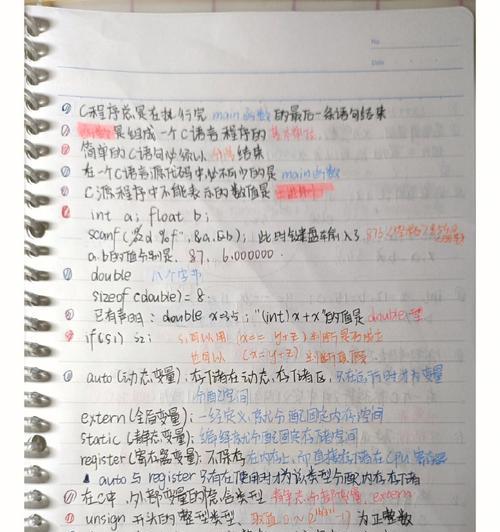 No.
Date
C程序总是在执行完main函数的最后一条语句结束
函数是组成一个C语言程序的基本单位
简单的C语句必须以分号结束
在一个C语言源代码中必不可少的是main函数
C源程序中不能表示的数值是二进制
int a; float b;
scanf("%d %f",&a,&b); 此时键盘输入了 876
a.b的值分别是, 87, 6.000000.
double 八个字节
sizeof(double)=8.
已有声明: double x=3.5; "(int)x+x"的值是double型
if(s1) s2; s1可以用 (x== y+z) 判断是否成立
也可以 (x= y+z) 判断真假
auto(动态变量), 存储在动态存储区, 只在运行时才有变量
分配空间
extern(全局变量); 一经定义, 就分配固定内存空间
static (静态变量); 编译就分配固定存储空间
register(寄存器变量); 不保存在内存上, 而直接存储在CPU寄存器
auto 与 register 只有在使用时才为该类型分配内存存储
在C中, 外部变量的隐含类型 extern
unsign 开头的整型类型 取值 0~ 为正整数